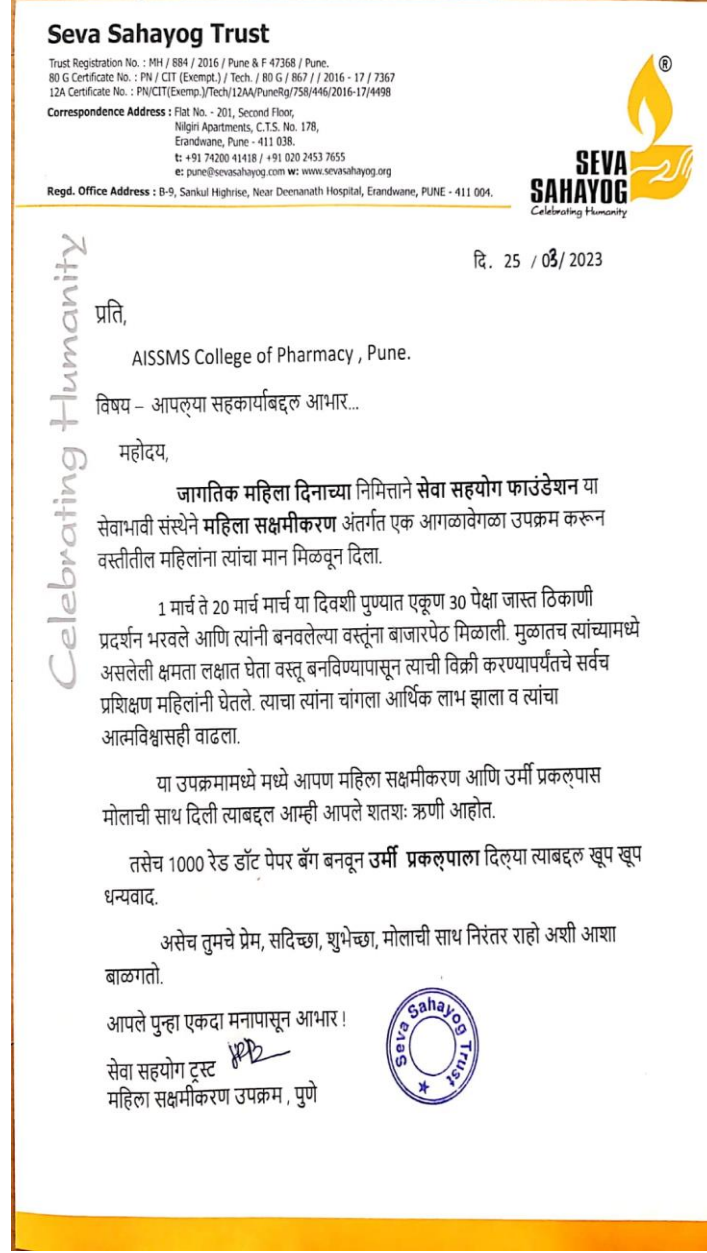 Seva Sahayog Trust
Trust Registration No. : MH / 884 / 2016 / Pune & F 47368 / Pune.
80 G Certificate No. : PN / CIT (Exempt.) / Tech. / 80 G / 867 / / 2016 - 17 / 7367
12A Certificate No. : PN/CIT(Exemp.)/Tech/12AA/PuneRg/758/446/2016-17/4498
Correspondence Address : Flat No. - 201, Second Floor,
Nilgiri Apartments, C.T.S. No. 178,
Erandwane, Pune - 411 038.
t: +91 74200 41418 / +91 020 2453 7655
e: pune@sevasahayog.com w: www.sevasahayog.org
Regd. Office Address : B-9, Sankul Highrise, Near Deenanath Hospital, Erandwane, PUNE - 411 004.
®
SEVA
SAHAYOG
Celebrating Humanity
Celebrating Humanity
दि. 25 / 03/ 2023
प्रति,
AISSMS College of Pharmacy , Pune.
विषय – आपल्या सहकार्याबद्दल आभार...
महोदय,
जागतिक महिला दिनाच्या निमित्ताने सेवा सहयोग फाउंडेशन या
सेवाभावी संस्थेने महिला सक्षमीकरण अंतर्गत एक आगळावेगळा उपक्रम करून
वस्तीतील महिलांना त्यांचा मान मिळवून दिला.
1 मार्च ते 20 मार्च मार्च या दिवशी पुण्यात एकूण 30 पेक्षा जास्त ठिकाणी
प्रदर्शन भरवले आणि त्यांनी बनवलेल्या वस्तूंना बाजारपेठ मिळाली. मुळातच त्यांच्यामध्ये
असलेली क्षमता लक्षात घेता वस्तू बनविण्यापासून त्याची विक्री करण्यापर्यंतचे सर्वच
प्रशिक्षण महिलांनी घेतले. त्याचा त्यांना चांगला आर्थिक लाभ झाला व त्यांचा
आत्मविश्वासही वाढला.
या उपक्रमामध्ये मध्ये आपण महिला सक्षमीकरण आणि उर्मी प्रकल्पास
मोलाची साथ दिली त्याबद्दल आम्ही आपले शतशः ऋणी आहोत.
तसेच 1000 रेड डॉट पेपर बॅग बनवून उर्मी प्रकल्पाला दिल्या त्याबद्दल खूप खूप
धन्यवाद.
असेच तुमचे प्रेम, सदिच्छा, शुभेच्छा, मोलाची साथ निरंतर राहो अशी आशा
बाळगतो.
आपले पुन्हा एकदा मनापासून आभार !
सेवा सहयोग ट्रस्ट
महिला सक्षमीकरण उपक्रम , पुणे
Seva Sahayog Trust